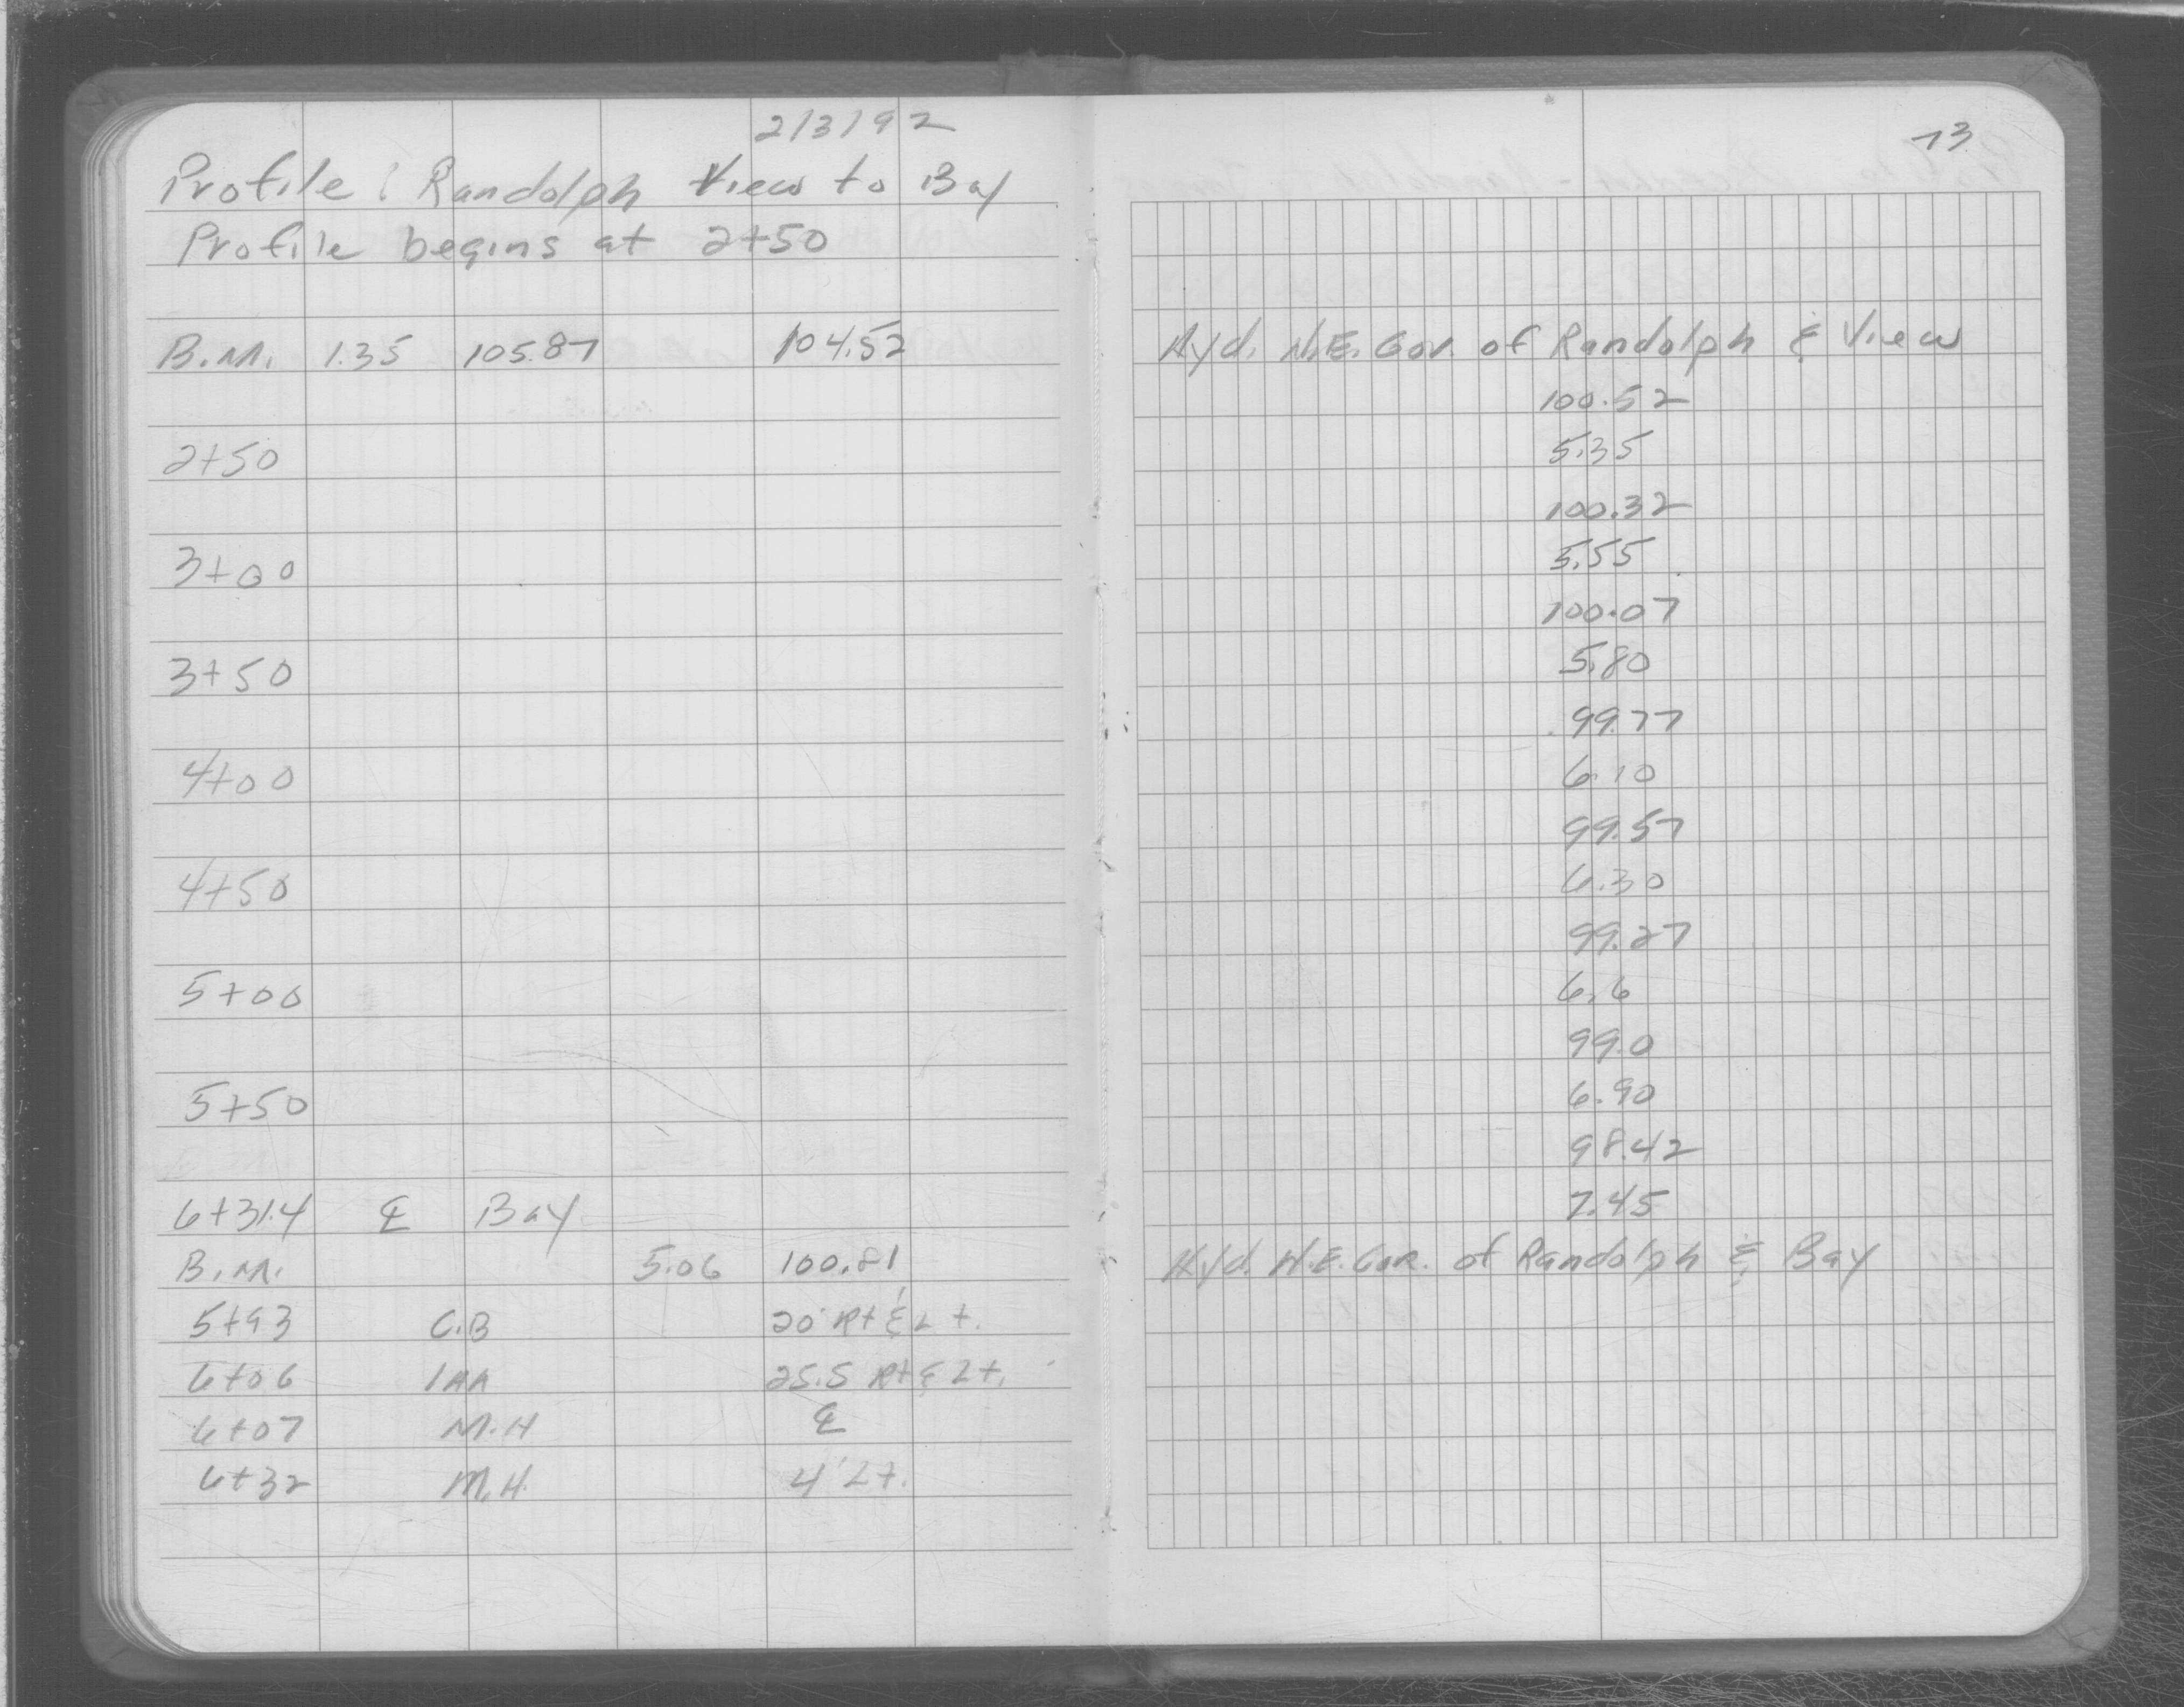 2/3/92
Profile: Randolph View to Bay
Profile begins at 2+50
B.M. 1.35 105.87 104.52
2+50
3+00
3+50
4+00
4+50
5+00
5+50
6+31.4 ℄ Bay
B.M. 5.06 100.81
5+93 C.B 20' Rt & Lt.
6+06 25.5 Rt & Lt.
6+07 M.H ℄
6+32 M.H. 4' Lt.
73
Hyd. N.E. Cor. of Randolph & View
100.52
5.35
100.32
5.55
100.07
5.80
99.77
6.10
99.57
6.30
99.27
6.6
99.0
6.90
98.42
7.45
Hyd. N.E. Cor. of Randolph & Bay